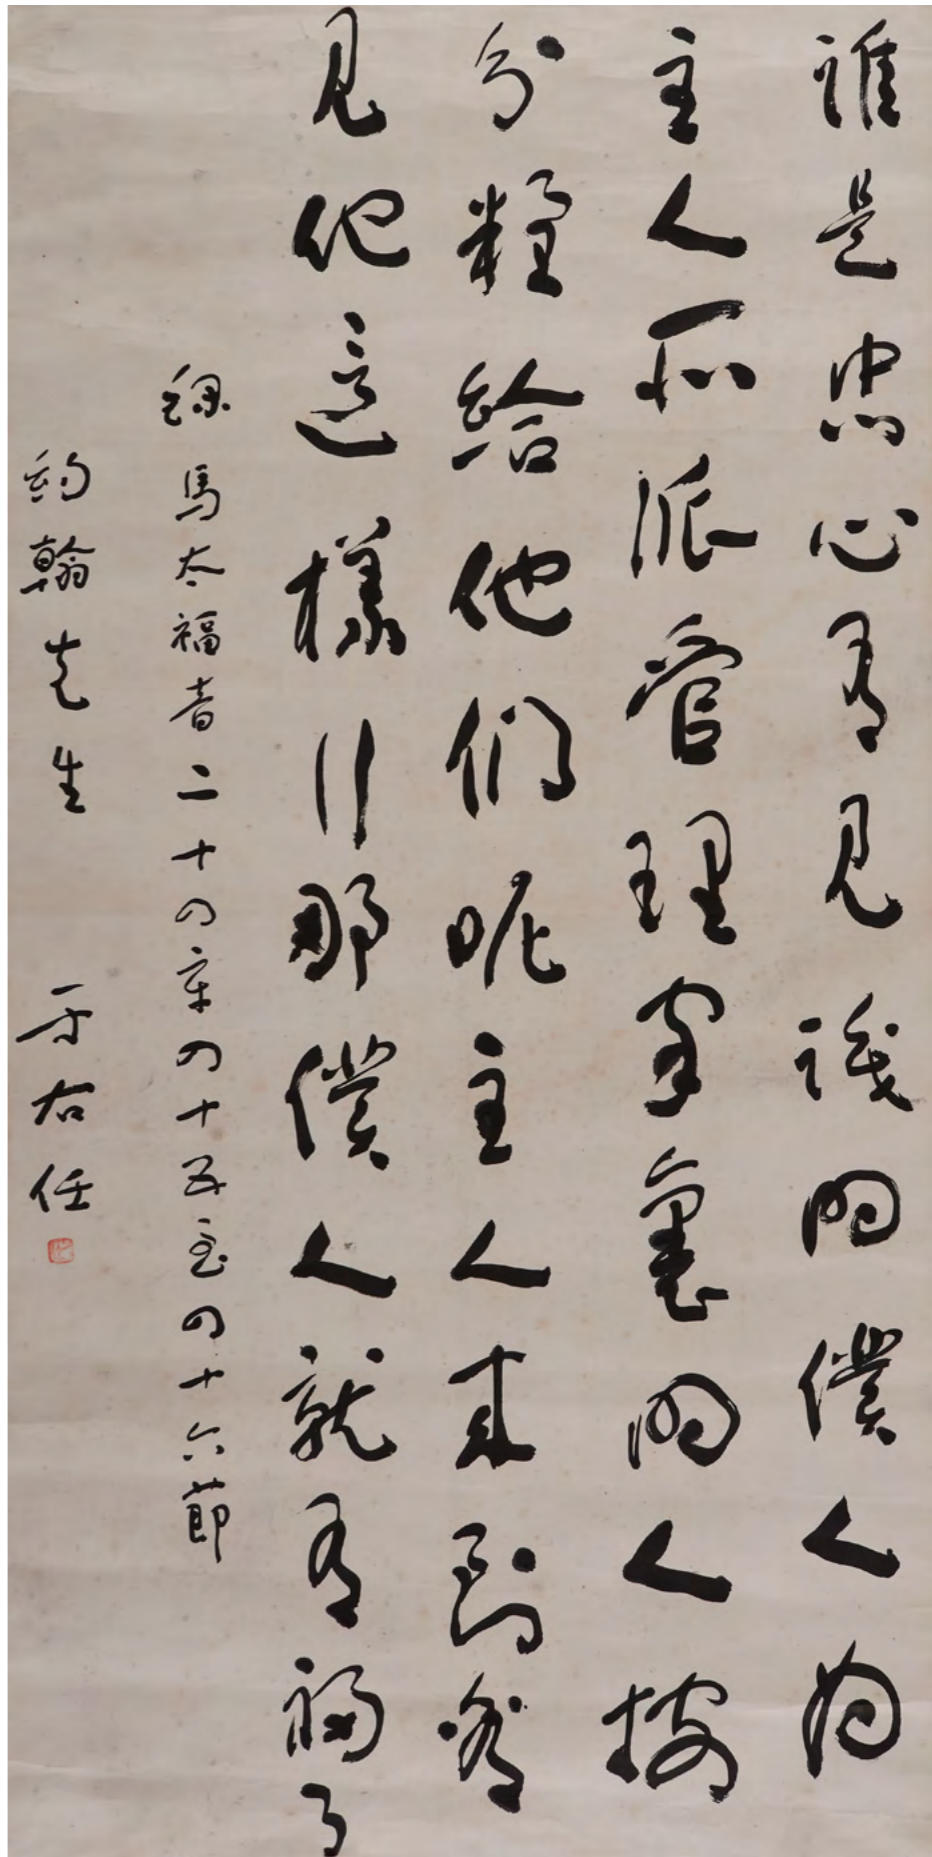 誰是忠心有見識的僕人為
主人所派管理家裏的人按
分糧給他們呢主人來到看
見他這樣行那僕人就有福了
錄馬太福音二十四章四十五至四十六節
約翰先生 于右任